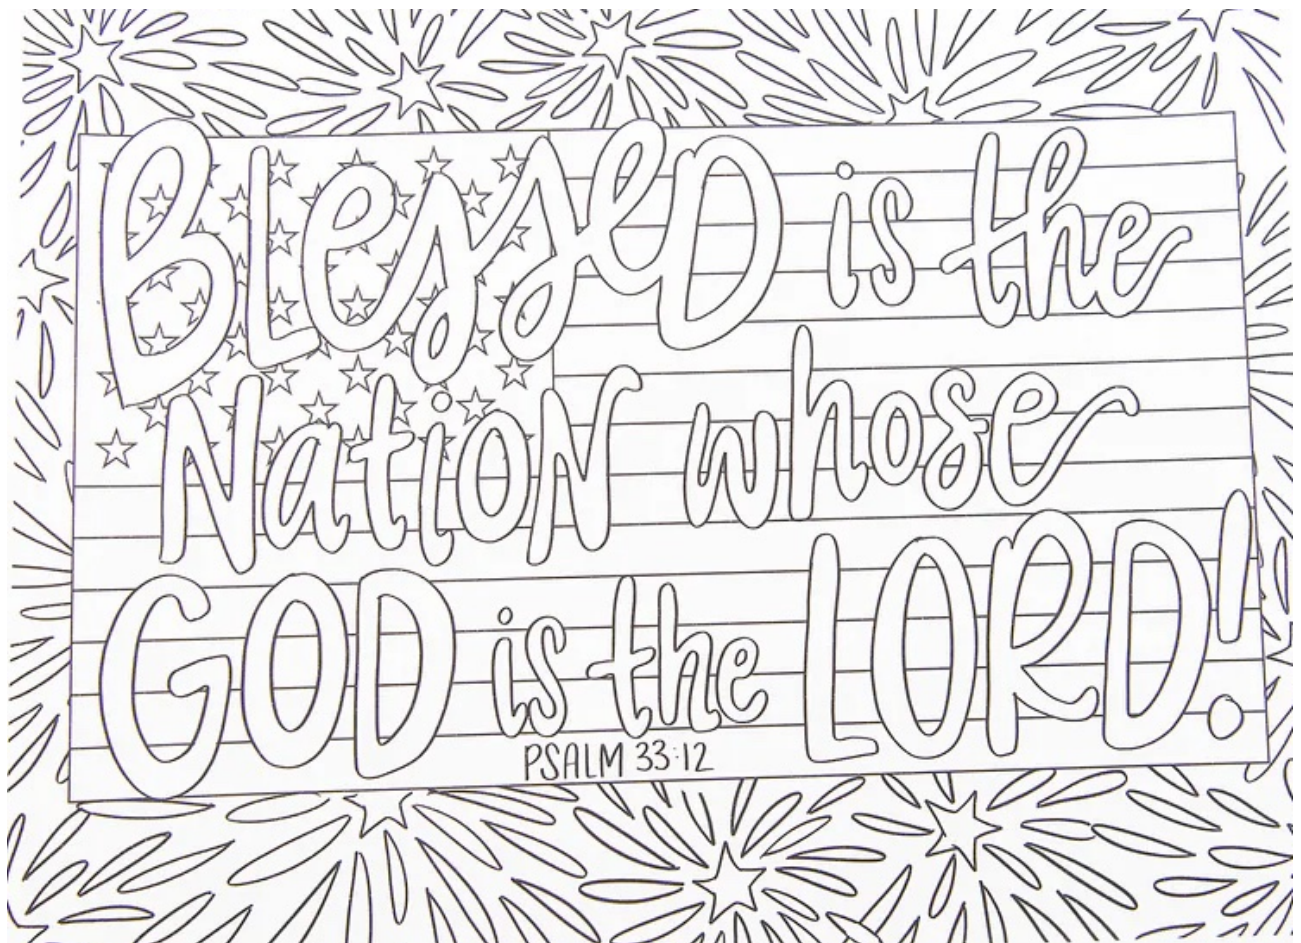 BLesseD is the
NatioN whose
GOD is the LORD!
PSALM 33:12